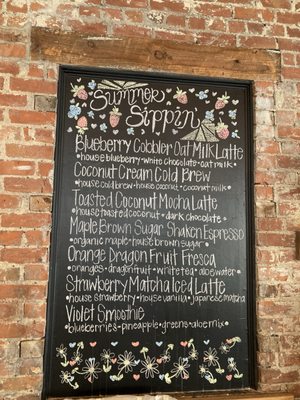 Summer
Sippin
Blueberry Cobbler Oat Milk Latte
•house blueberry•white chocolate•oat milk•
Coconut Cream Cold Brew
•house cold brew•house coconut•coconut milk•
Toasted Coconut Mocha Latte
•house toasted coconut•dark chocolate•
Maple Brown Sugar Shaken Espresso
•organic maple•house brown sugar•
Orange Dragon Fruit Fresca
•oranges•dragonfruit•white tea•aloe water•
Strawberry Matcha Iced Latte
•house strawberry•house vanilla•japanese matcha
Violet Smoothie
•blueberries•pineapple•greens•aloe mix•